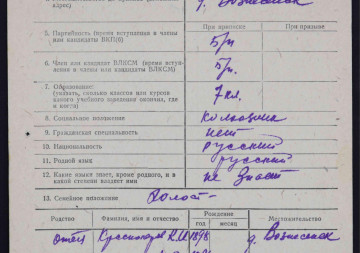 адрес) д. Вознесенск
При приписке При призыве
5. Партийность (время вступления в члены
или кандидаты ВКП(б) б/п
6. Член или кандидат ВЛКСМ (время вступ-
ления в члены или кандидаты ВЛКСМ) б/п.
7. Образование:
(указать, сколько классов или курсов
какого учебного заведения окончил, где
и когда) 7 кл.
8. Социальное положение колхозник
9. Гражданская специальность нет
10. Национальность русский
11. Родной язык русский
12. Какие языки знает, кроме родного, и в
какой степени владеет ими не знает
13. Семейное положение Холост
Родство Фамилия, имя и отчество Рождение Местожительство
год месяц
отец 1898 д. Вознесенск